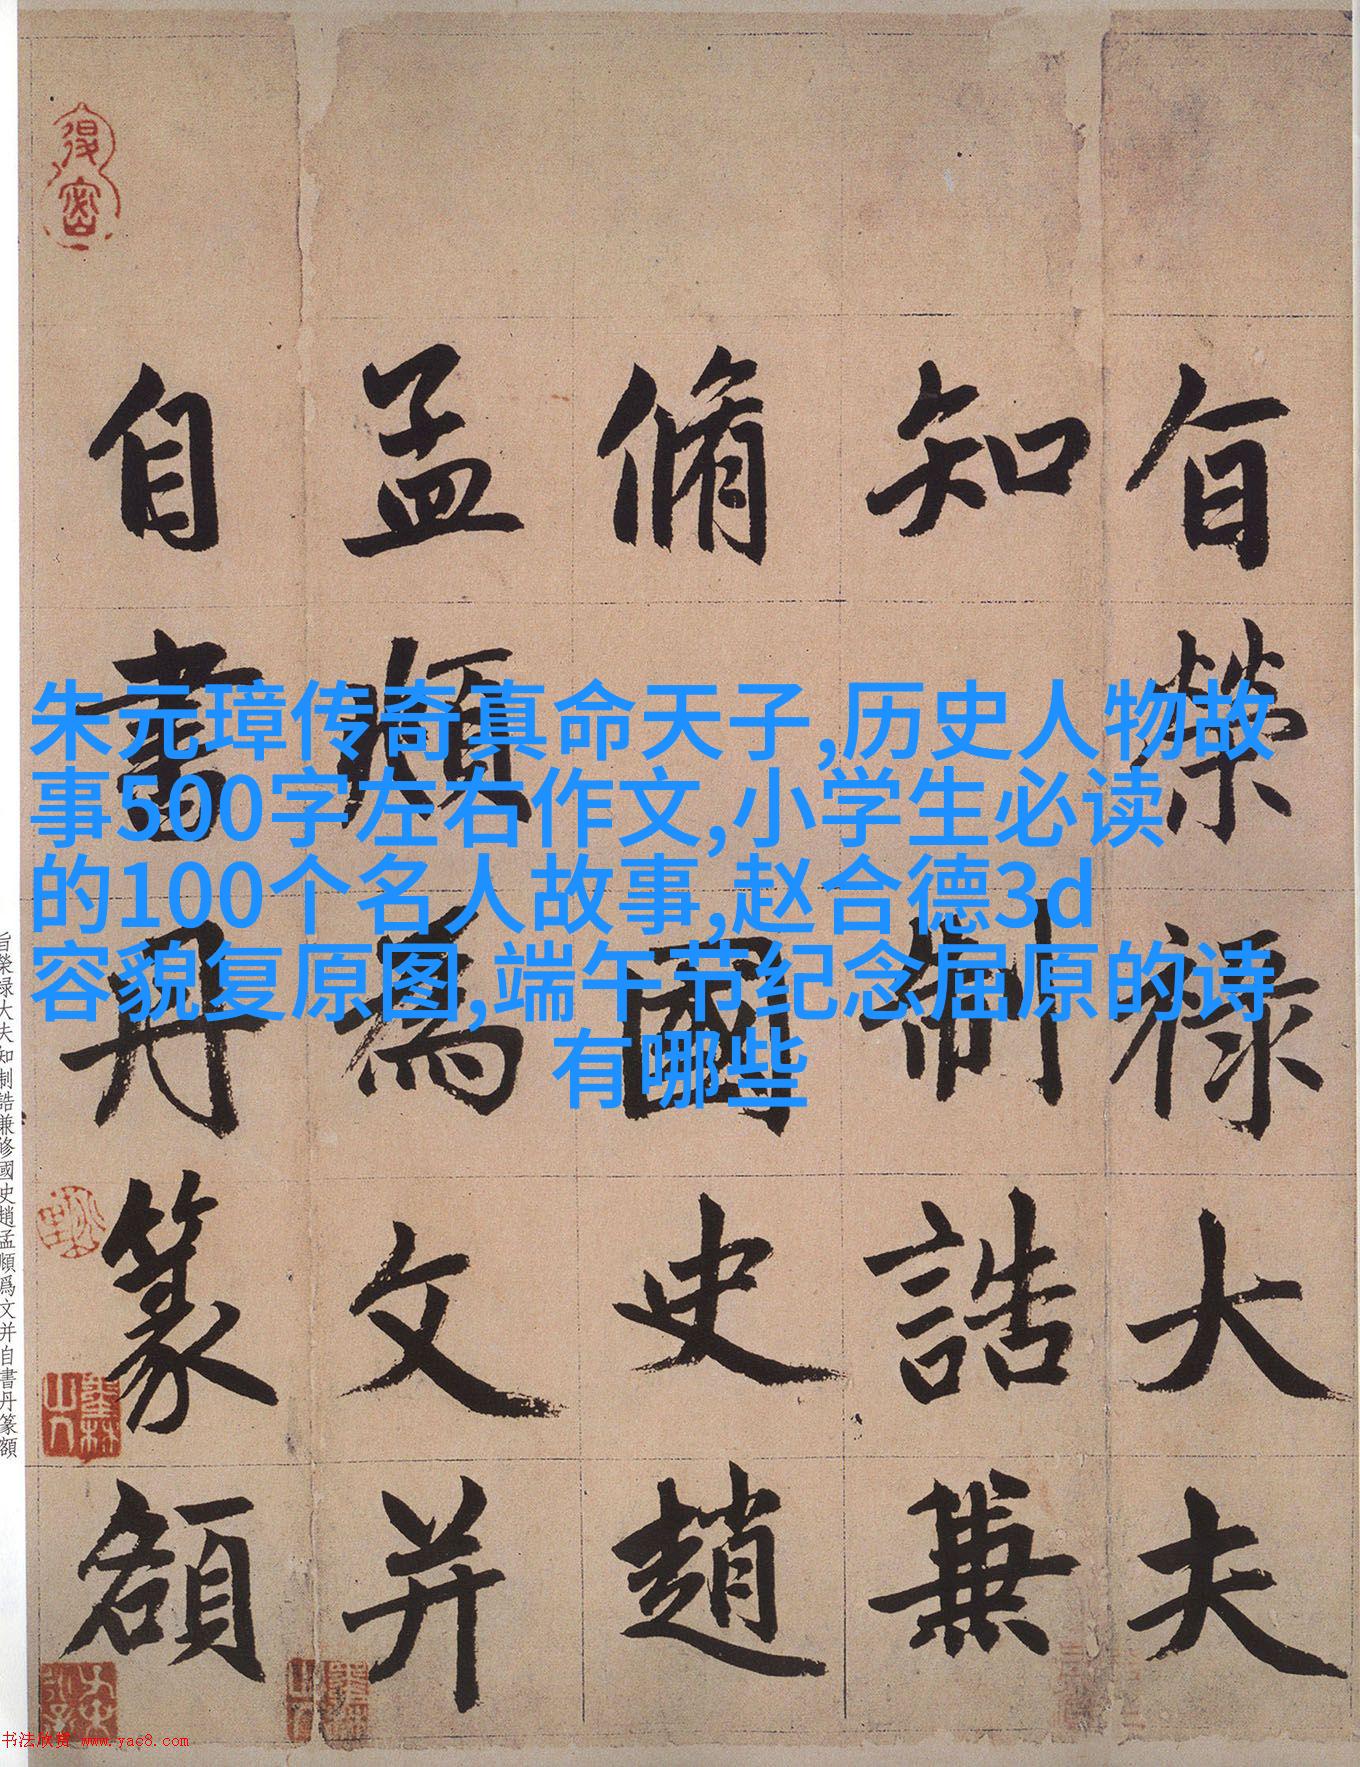 旨榮禄大夫
知制誥兼
脩國史趙
孟頫為文并
自書丹篆額
朱元璋传奇真命天子,历史人物故
事500字左右作文,小学生必读
的100个名人故事,赵合德3d
容貌复原图,端午节纪念屈原的诗
有哪些
旨榮禄大夫知制誥兼修國史趙孟頫爲文并自書丹篆額
书法欣赏 www.yac8.com